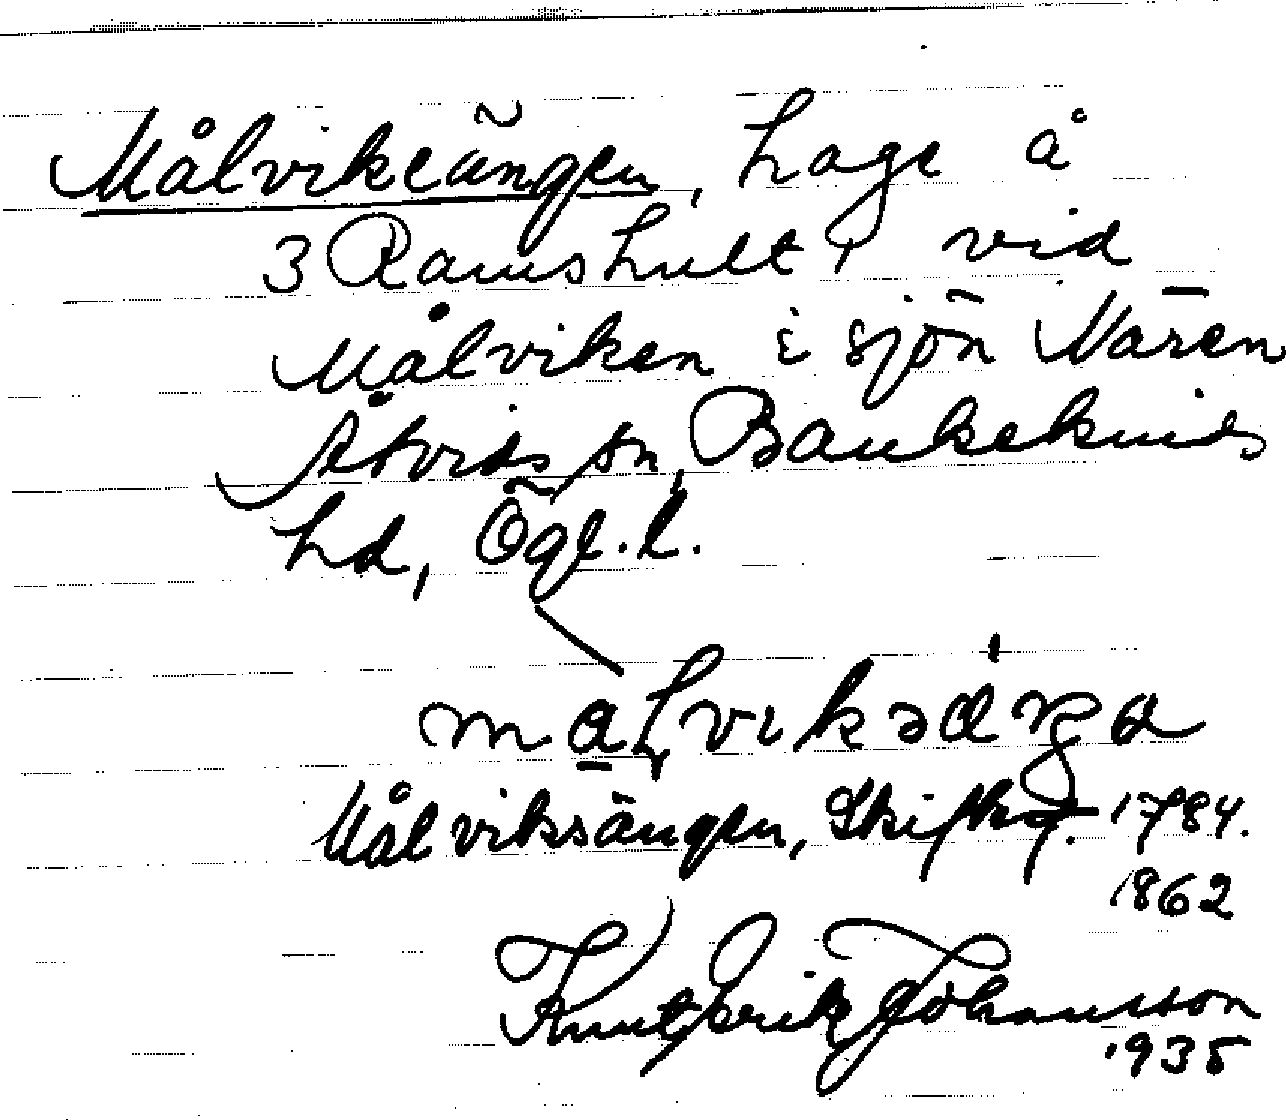 Målvikeängen, hage å
3 Ramshult, vid
Målviken i sjön Nären
Åtvids sn, Bankekinds
hd, Ögl. l.
målvikəäŋa
Målviksängen, Skifksf. 1784.
1862
Knut Erik Johansson
1935